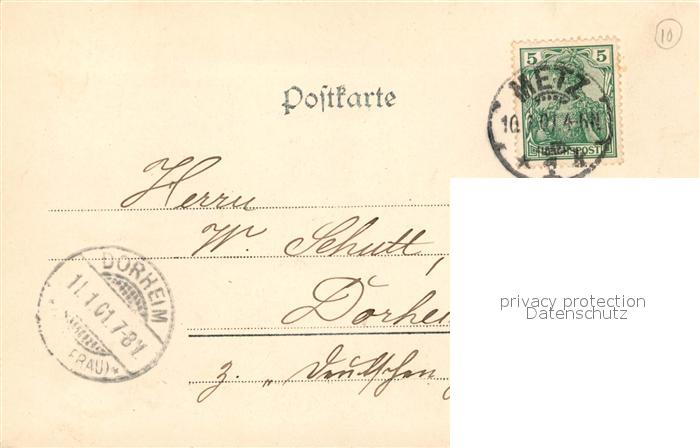 10
5 5
REICHSPOST
METZ
10. 1. 01. 4-5N
Postkarte
Herrn
W. Schutt,
Dorhei
z. „Deutschen
DORHEIM
11.1.01.7-8V.
FRAU)*
privacy protection
Datenschutz